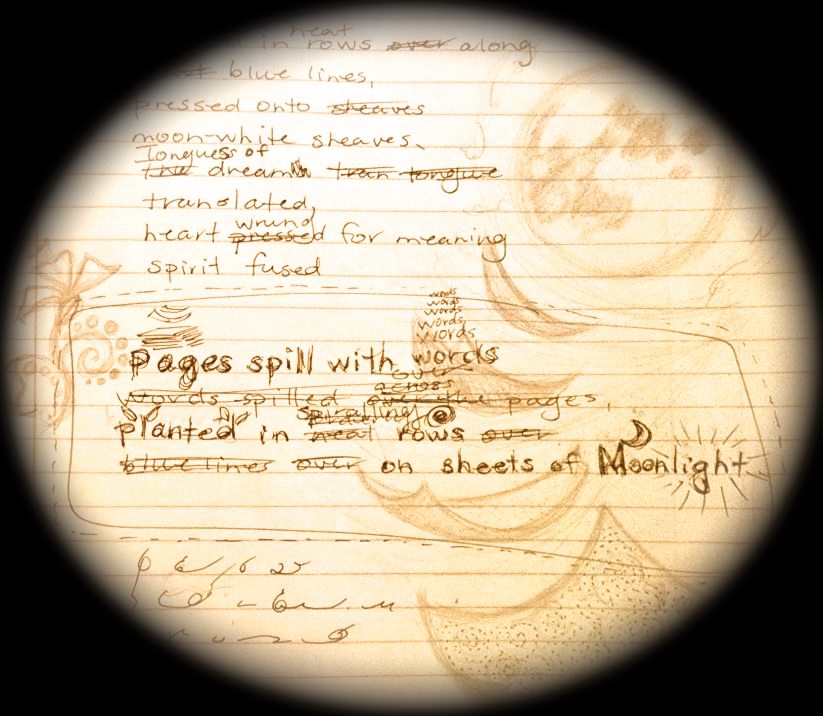 neat
in rows over along
blue lines,
pressed onto sheaves
moon-white sheaves.
Tongues of
the dream tran tongue
translated,
wrung
heart pressed for meaning
spirit fused
words
words
words
words
words
pages spill with words
over
across
words spilled over the pages,
spiralling
planted in neat rows over
blue lines over on sheets of Moonlight